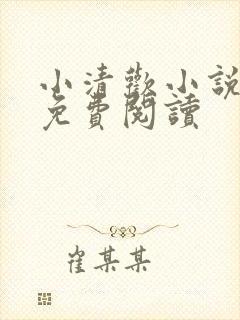 小清歡小說
免費閱讀
崔某某